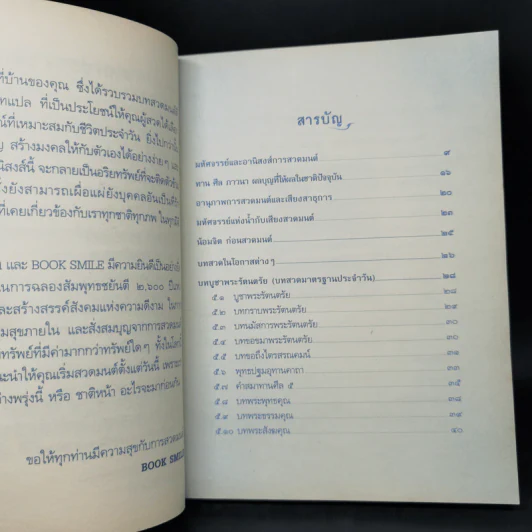 ที่บ้านของคุณ ซึ่งได้รวบรวมบทสวดมนต์
แปล ที่เป็นประโยชน์ให้คุณผู้สวดได้
ที่เหมาะสมกับชีวิตประจำวัน ยิ่งไปกว่านั้น
สร้างมงคลให้กับตัวเองได้อย่างง่ายๆ
นิสงส์นี้ จะกลายเป็นอริยทรัพย์ที่จะติดตัว
ยังสามารถเผื่อแผ่ยังบุคคลอันเป็นที่รัก
ที่เคยเกี่ยวข้องกับเราทุกชาติทุกภพ
และ BOOK SMILE มีความยินดีเป็นอย่างยิ่ง
ในการฉลองสัมพุทธชยันตี ๒,๖๐๐ ปี
และสร้างสรรค์สังคมแห่งความดีงาม
สุขภายใน และสั่งสมบุญจากการสวดมนต์
ทรัพย์ที่มีค่ามากกว่าทรัพย์ใดๆ
แนะนำให้คุณเริ่มสวดมนต์ตั้งแต่วันนี้
พรุ่งนี้ หรือ ชาติหน้า อะไรจะมาก่อนกัน
ขอให้ทุกท่านมีความสุขกับการสวดมนต์
BOOK SMILE
สารบัญ
มหัศจรรย์และอานิสงส์การสวดมนต์ ๙
ทาน ศีล ภาวนา ผลบุญที่ให้ผลในชาติปัจจุบัน ๑๖
อานุภาพการสวดมนต์และเสียงสาธุการ ๒๐
มหัศจรรย์แห่งน้ำกับเสียงสวดมนต์ ๒๓
น้อมจิต ก่อนสวดมนต์ ๒๕
บทสวดในโอกาสต่างๆ ๒๖
บทบูชาพระรัตนตรัย (บทสวดมาตรฐานประจำวัน) ๒๘
๕.๑ บูชาพระรัตนตรัย ๒๘
๕.๒ บทกราบพระรัตนตรัย ๒๙
๕.๓ บทนมัสการพระรัตนตรัย ๓๐
๕.๔ บทขอขมาพระรัตนตรัย ๓๐
๕.๕ บทขอถึงไตรสรณคมน์ ๓๑
๕.๖ พุทธปฐมอุทานคาถา ๓๓
๕.๗ คำสมาทานศีล ๕ ๓๕
๕.๘ บทพระพุทธคุณ ๓๘
๕.๙ บทพระธรรมคุณ ๓๙
๕.๑๐ บทพระสังฆคุณ ๔๐